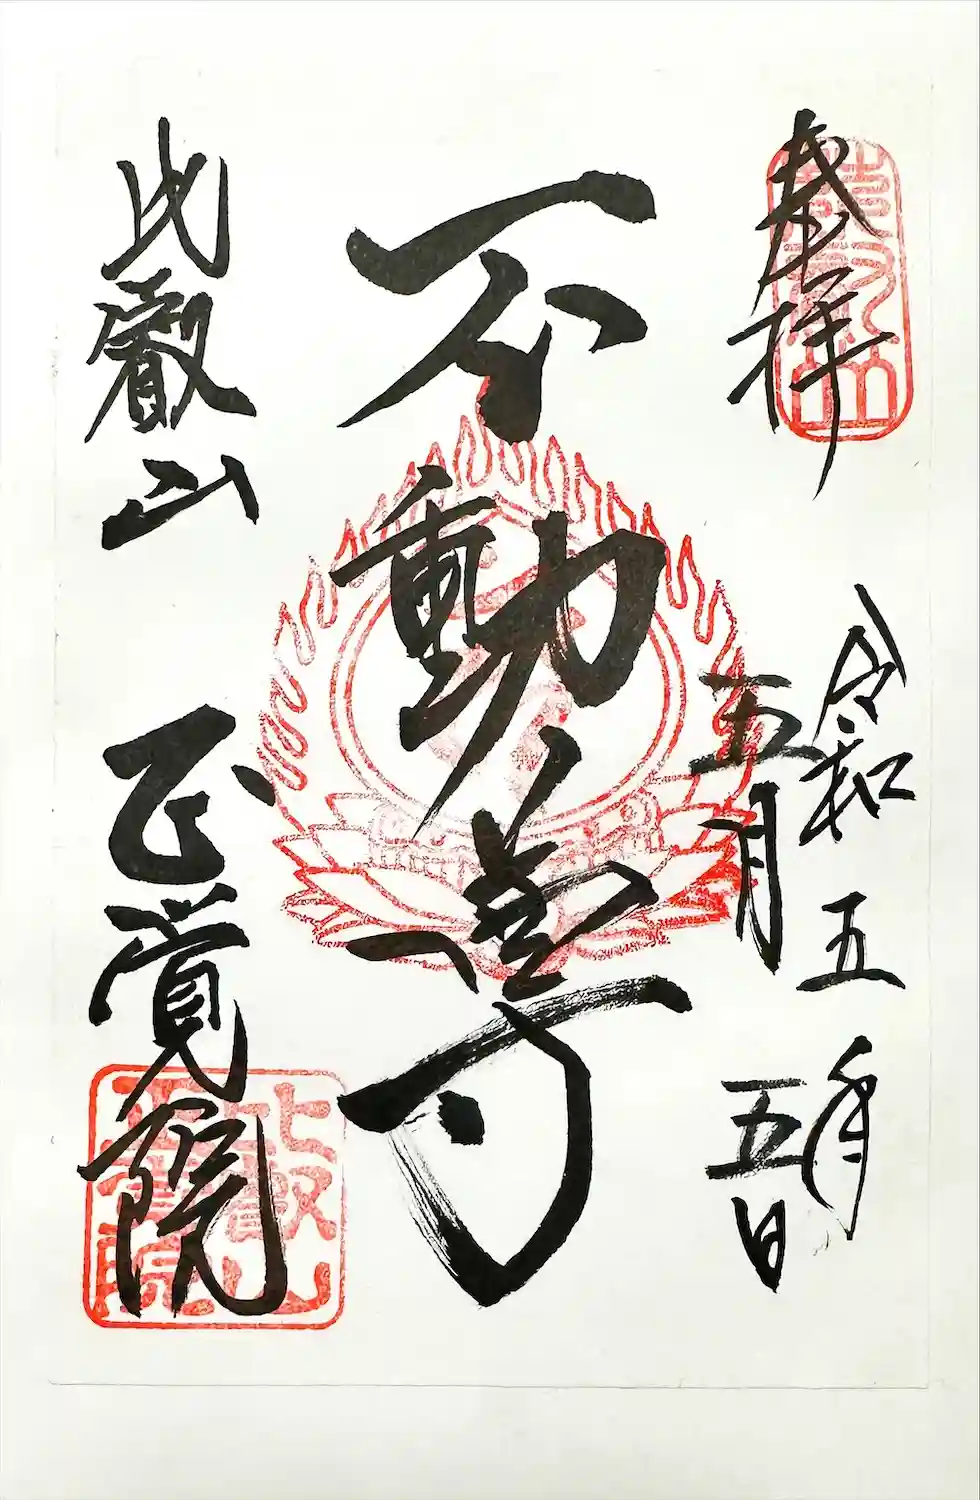 奉拝
令和五年
五月五日
不動尊
比叡山
正覚院
比叡山
正覚院